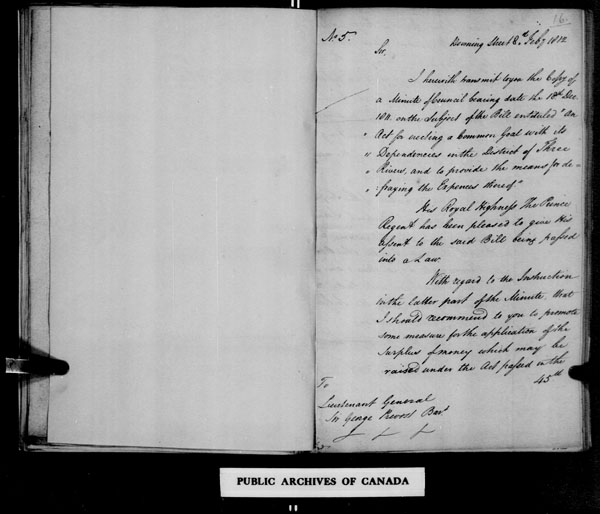 16.
No 5.
Downing Street 8th Feby 1812
Sir,
I herewith transmit to you the Copy of
a Minute of Council bearing date the 18th Dec.
1811. on the Subject of the Bill entituled "An
" Act for erecting a Common Goal with its
" Dependencies in the District of Three
" Rivers, and to provide the means for de-
" fraying the Expences thereof."
His Royal Highness The Prince
Regent has been pleased to give His
assent to the said Bill being passed
into a Law.
With regard to the Instruction
in the latter part of the Minute, that
I should recommend to you to promote
some measure for the application of the
Surplus of money which may be
raised under the Act passed in the
45th
To
Lieutenant General
Sir George Prevost Bart
PUBLIC ARCHIVES OF CANADA